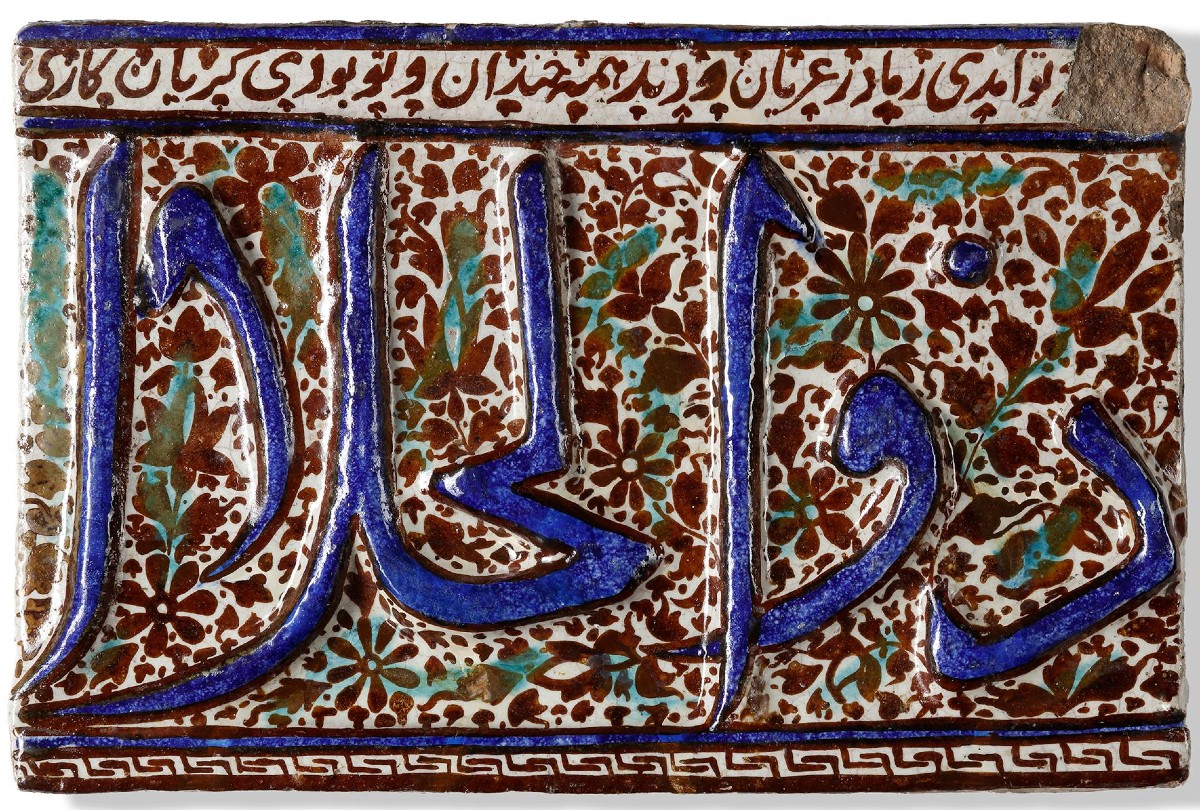 تو امدی ز مادر عریان بودند همه خندان و تو بودی کریان کاری
ذو الجلال